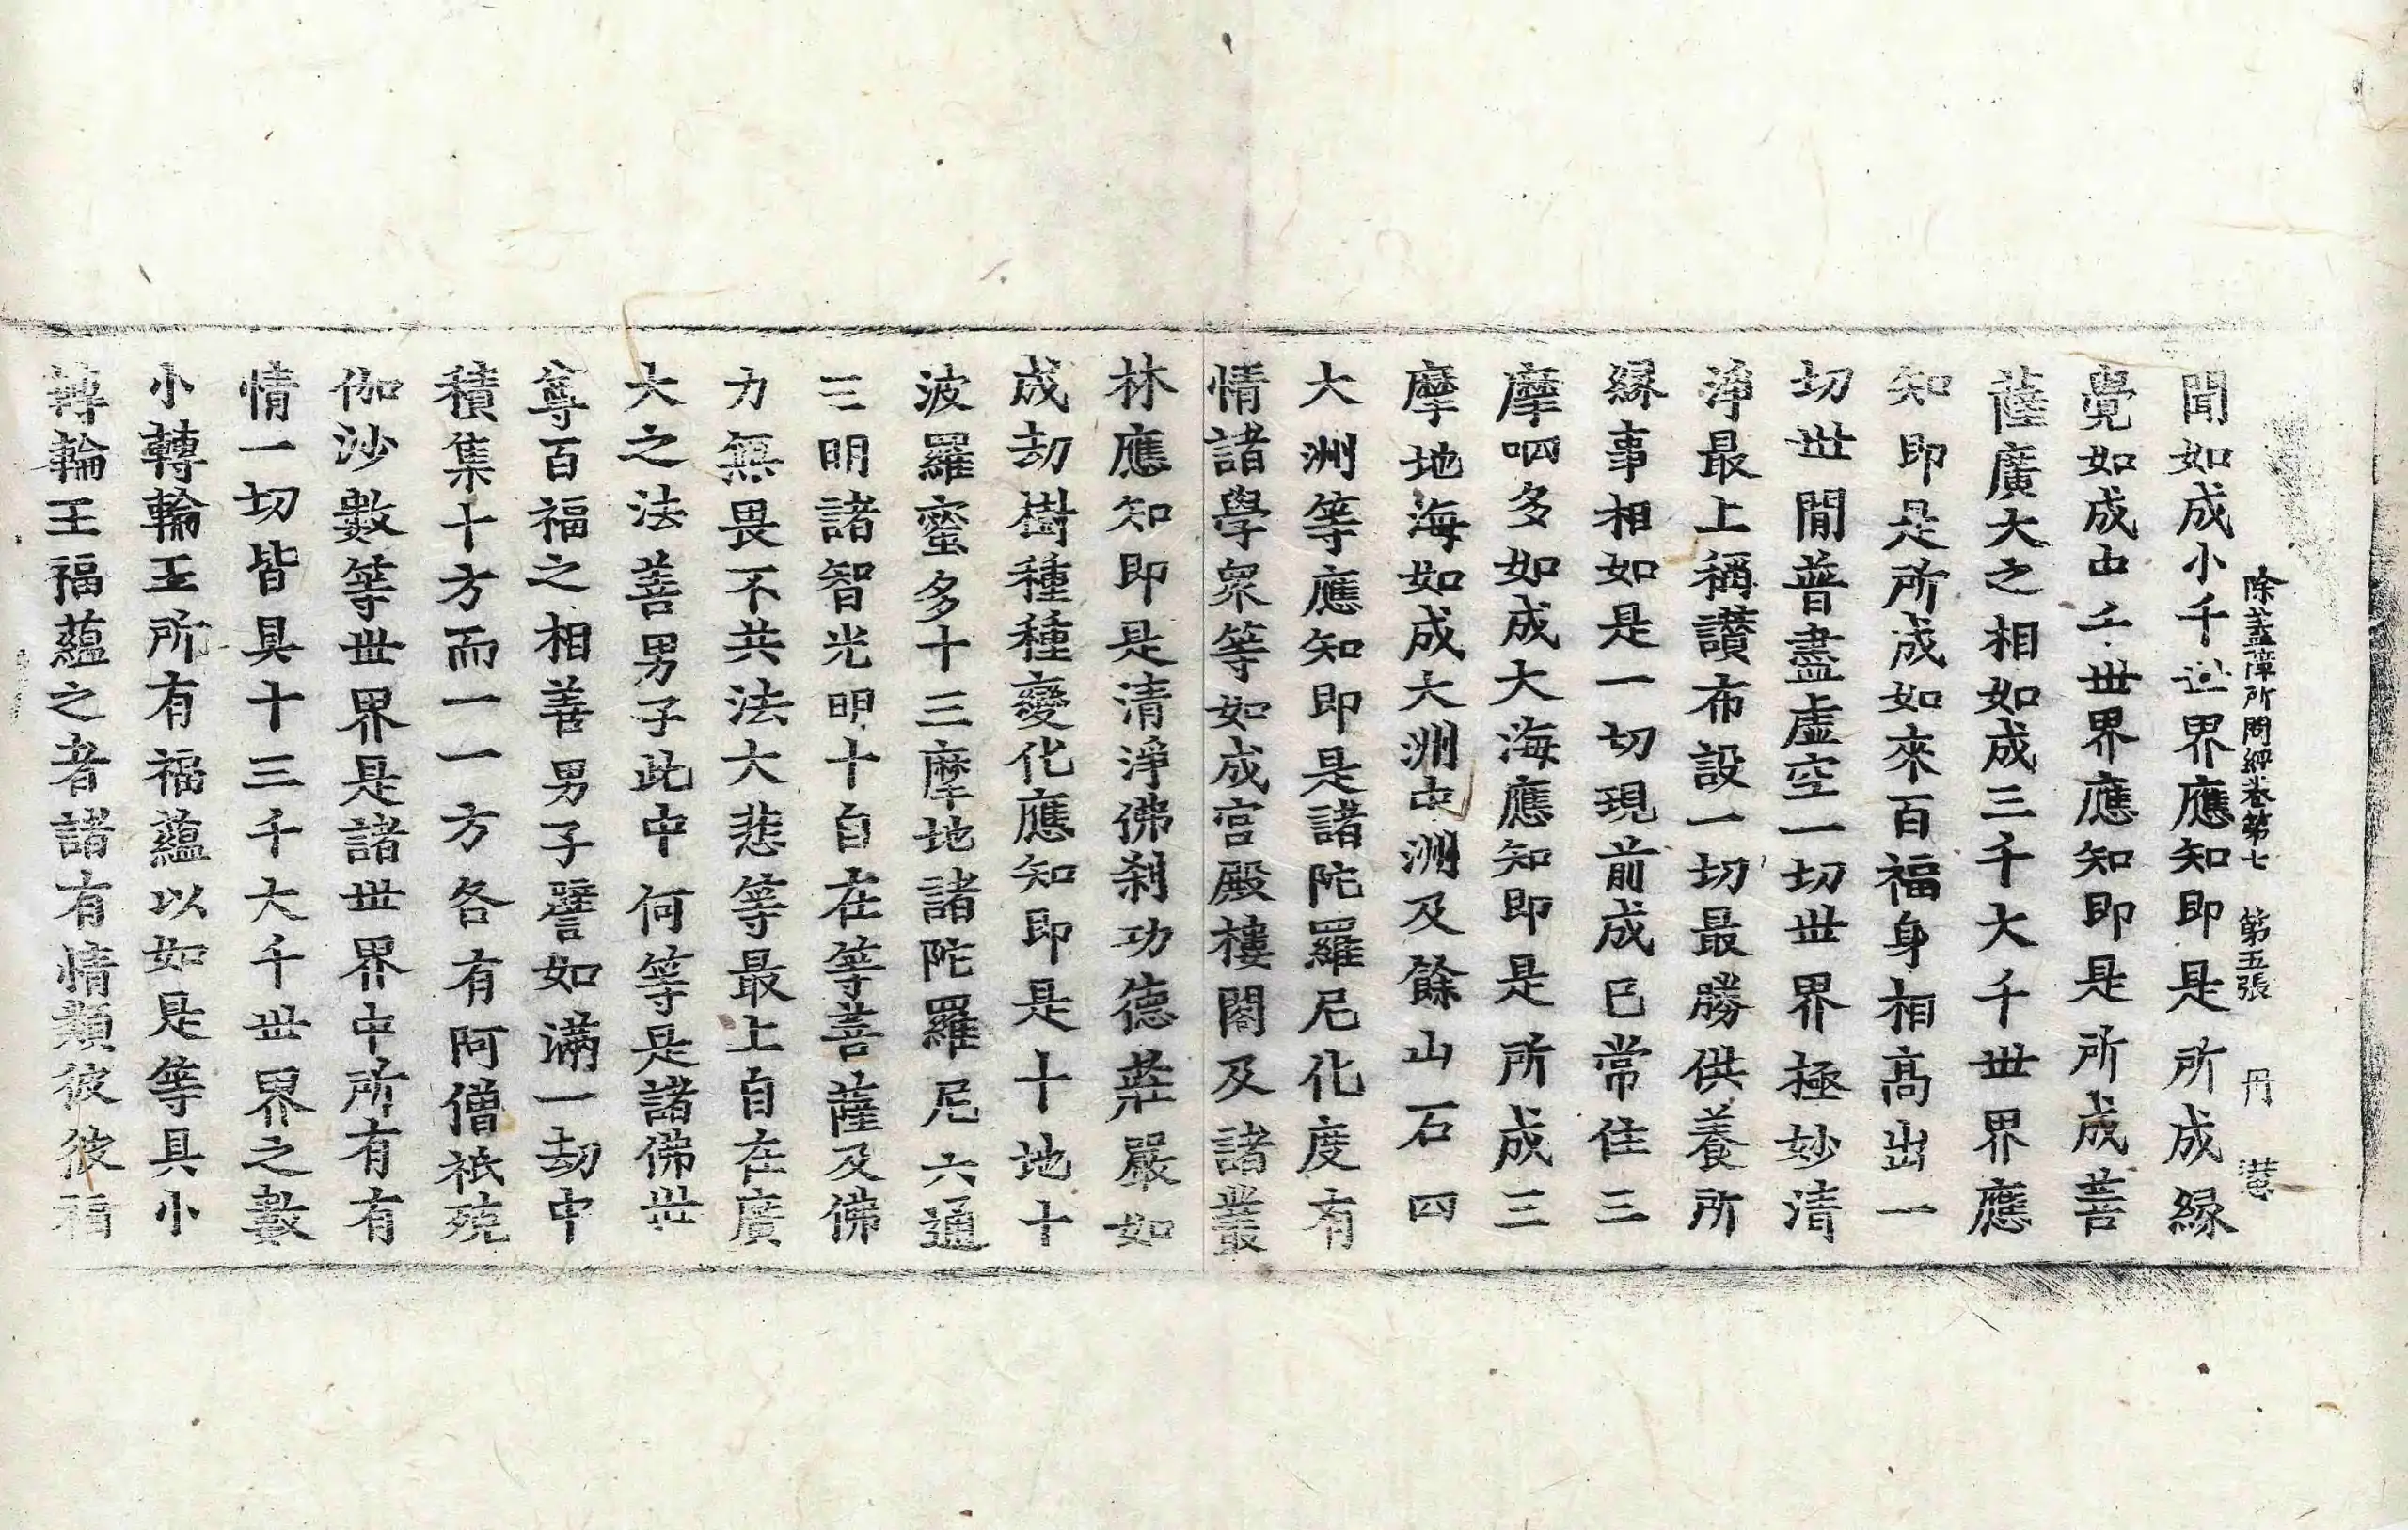 除蓋障所問經卷第七　第五張　丹　慧
聞如成小千世界應知即是所成緣
覺如成中千世界應知即是所成菩
薩廣大之相如成三千大千世界應
知即是所成如來百福身相高出一
切世閒普盡虛空一切世界極妙清
淨最上稱讚布設一切最勝供養所
緣事相如是一切現前成已常住三
摩呬多如成大海應知即是所成三
摩地海如成大洲中洲及餘山石四
大洲等應知即是諸陀羅尼化度有
情諸學衆等如成宮殿樓閣及諸叢
林應知即是清淨佛刹功德莊嚴如
成劫樹種種變化應知即是十地十
波羅蜜多十三摩地諸陀羅尼六通
三明諸智光明十自在等菩薩及佛
力無畏不共法大悲等最上自在廣
大之法善男子此中何等是諸佛世
尊百福之相善男子譬如滿一劫中
積集十方而一一方各有阿僧祇殑
伽沙數等世界是諸世界中所有有
情一切皆具十三千大千世界之數
小轉輪王所有福蘊以如是等具小
轉輪王福蘊之者諸有情類彼彼福